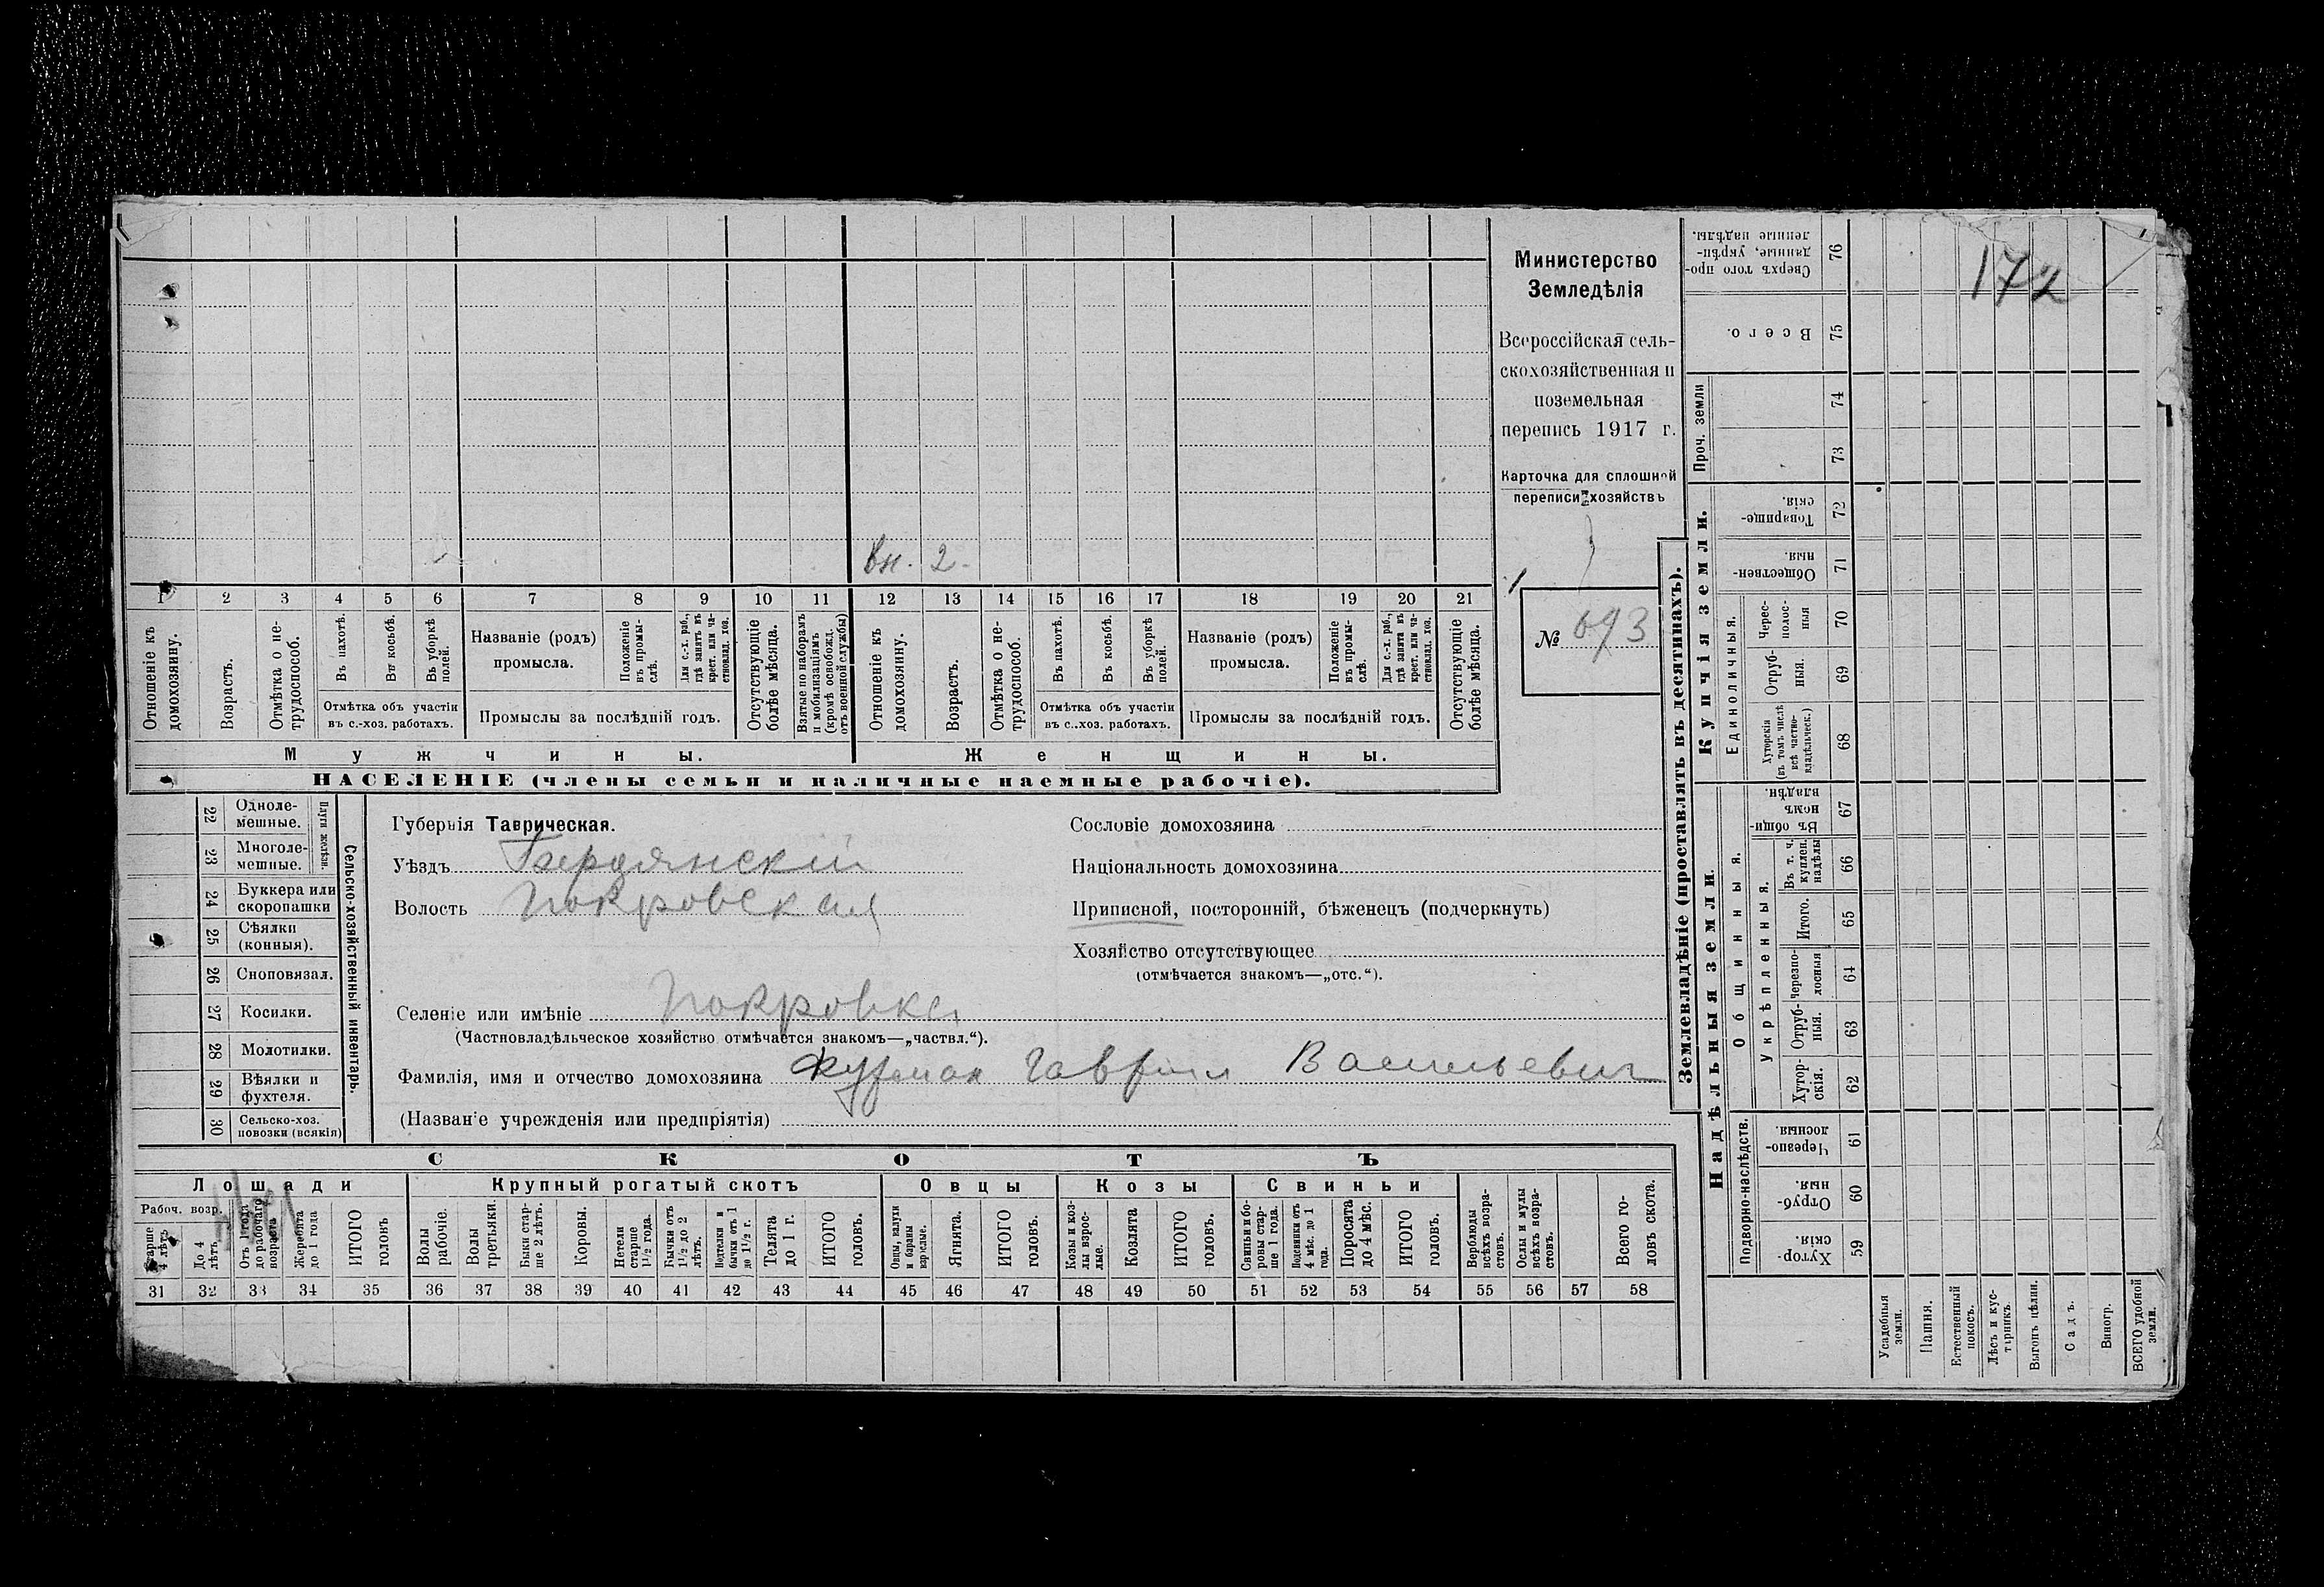 172
Министерство
Земледѣлія
Всероссійская сель-
скохозяйственная и
поземельная
перепись 1917 г.
Карточка для сплошной
переписи хозяйствъ
№ 693
вн. 2.
1 2 3 4 5 6 7 8 9 10 11 12 13 14 15 16 17 18 19 20 21
Отношеніе къ домохозяину.
Возрастъ.
Отмѣтка о не-трудоспособ.
Въ пахотѣ.
Въ косьбѣ.
Въ уборкѣ полей.
Отмѣтка объ участіи
въ с.-хоз. работахъ.
Названіе (родъ)
промысла.
Положеніе въ промы-слѣ.
Для с.-х. раб., гдѣ занятъ въ крест. или ча-стновлад. хоз.
Промыслы за послѣдній годъ.
Отсутствующіе болѣе мѣсяца.
Взятые по наборамъ и мобилизаціямъ (кромѣ освобожд. отъ военной службы)
Отношеніе къ домохозяину.
Возрастъ.
Отмѣтка о не-трудоспособ.
Въ пахотѣ.
Въ косьбѣ.
Въ уборкѣ полей.
Отмѣтка объ участіи
въ с.-хоз. работахъ.
Названіе (родъ)
промысла.
Положеніе въ промы-слѣ.
Для с.-х. раб., гдѣ занята въ крест. или ча-стновлад. хоз.
Промыслы за послѣдній годъ.
Отсутствующіе болѣе мѣсяца.
Мужчины.
Женщины.
НАСЕЛЕНІЕ (члены семьи и наличные наемные рабочіе).
Сельско-хозяйственный инвентарь.
Плуги желѣзн.
22 Одноле-мешные.
23 Многоле-мешные.
24 Буккера или скоропашки
25 Сѣялки (конныя).
26 Сноповязал.
27 Косилки.
28 Молотилки.
29 Вѣялки и фухтеля.
30 Сельско-хоз. повозки (всякія)
Губернія Таврическая.
Уѣздъ Бердянскій
Волость Покровская
Селеніе или имѣніе Покровка
(Частновладѣльческое хозяйство отмѣчается знакомъ—„частвл.“).
Фамилія, имя и отчество домохозяина Гаврил Васильевич
(Названіе учрежденія или предпріятія)
Сословіе домохозяина
Національность домохозяина
Приписной, посторонній, бѣженецъ (подчеркнуть)
Хозяйство отсутствующее
(отмѣчается знакомъ—„отс.“).
СКОТЪ
Лошади
Крупный рогатый скотъ
Овцы
Козы
Свиньи
Рабоч. возр.
Старше 4 лѣтъ
До 4 лѣтъ
Отъ 1 года до рабочаго возраста
Жеребята до 1 года
ИТОГО головъ
Волы рабочіе.
Волы третьяки.
Быки стар-ше 2 лѣтъ.
Коровы.
Нетели старше 1½ года.
Бычки отъ 1½ до 2 лѣтъ.
Подтелки и бычки отъ 1 до 1½ г.
Телята до 1 г.
ИТОГО головъ.
Овцы, валухи и бараны взрослые.
Ягнята.
ИТОГО головъ.
Козы и коз-лы взрос-лые.
Козлята
ИТОГО головъ.
Свиньи и бо-ровы стар-ше 1 года.
Подсвинки отъ 4 мѣс. до 1 года.
Поросята до 4 мѣс.
ИТОГО головъ.
Верблюды всѣхъ возра-стовъ.
Ослы и мулы всѣхъ возра-стовъ.
Всего го-ловъ скота.
31 32 33 34 35 36 37 38 39 40 41 42 43 44 45 46 47 48 49 50 51 52 53 54 55 56 57 58
Землевладѣніе (проставлять въ десятинахъ).
Надѣльныя земли.
Подворно-наслѣдств.
Хутор-скія. 59
Отруб-ныя. 60
Черезпо-лосныя 61
Общинныя.
Укрѣпленныя.
Хутор-скія. 62
Отруб-ныя. 63
Черезпо-лосныя 64
Итого. 65
Въ т. ч. куплен. надѣлы 66
Въ общин-номъ владѣн. 67
Купчія земли.
Единоличныя.
Хуторскія (въ томъ числѣ всѣ частно-владѣльческ.) 68
Отруб-ныя. 69
Черес-полос-ныя 70
Обществен-ныя. 71
Товарище-скія. 72
Проч. земли
73
74
Всего. 75
Сверхъ того про-данные, укрѣп-ленные надѣлы. 76
Усадебныя земли.
Пашня.
Естественный покосъ.
Лѣсъ и кус-тарникъ.
Выгонъ цѣлин.
Садъ.
Виногр.
ВСЕГО удобной земли.